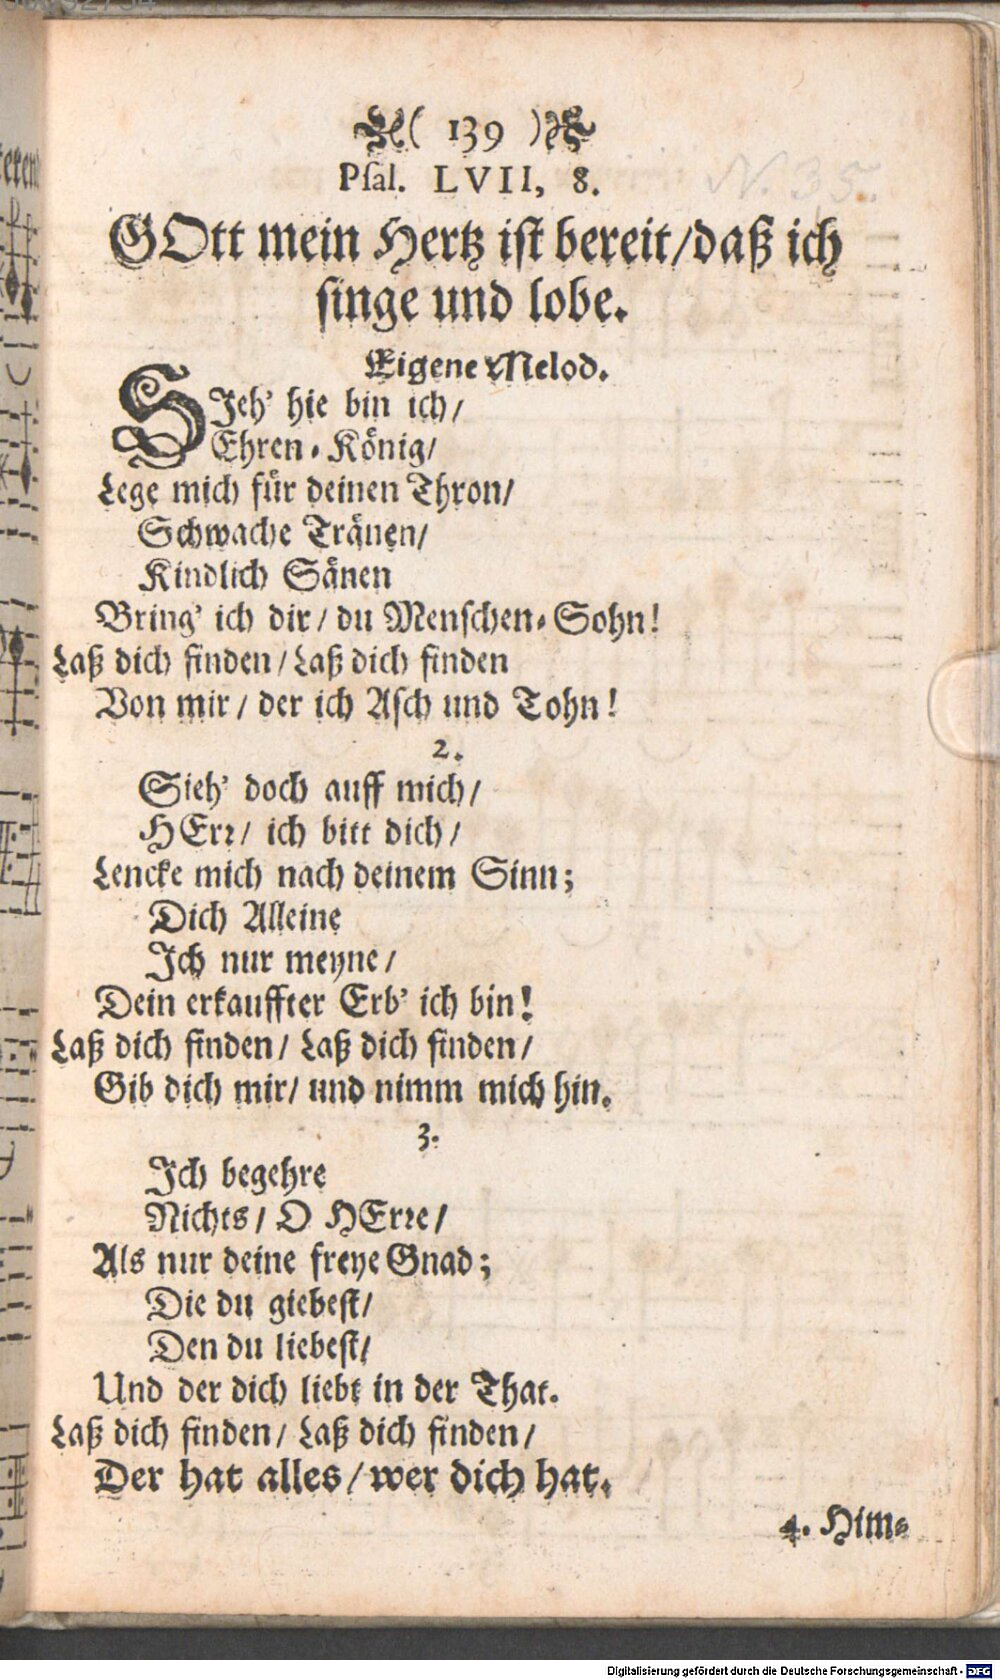 ( 139 )
Psal. LVII, 8.
N. 35.
GOtt mein Hertz ist bereit/daß ich
singe und lobe.
Eigene Melod.
SJeh' hie bin ich/
Ehren-König/
Lege mich für deinen Thron/
Schwache Tränen/
Kindlich Sänen
Bring' ich dir/ du Menschen-Sohn!
Laß dich finden/ Laß dich finden
Von mir/ der ich Asch und Tohn!
2.
Sieh' doch auff mich/
HErr/ ich bitt dich/
Lencke mich nach deinem Sinn;
Dich Alleine
Ich nur meyne/
Dein erkauffter Erb' ich bin!
Laß dich finden/ Laß dich finden/
Gib dich mir/ und nimm mich hin.
3.
Ich begehre
Nichts/ O HErre/
Als nur deine freye Gnad;
Die du giebest/
Den du liebest/
Und der dich liebt in der That.
Laß dich finden/ Laß dich finden/
Der hat alles/ wer dich hat.
4. Him-
Digitalisierung gefördert durch die Deutsche Forschungsgemeinschaft - DFG